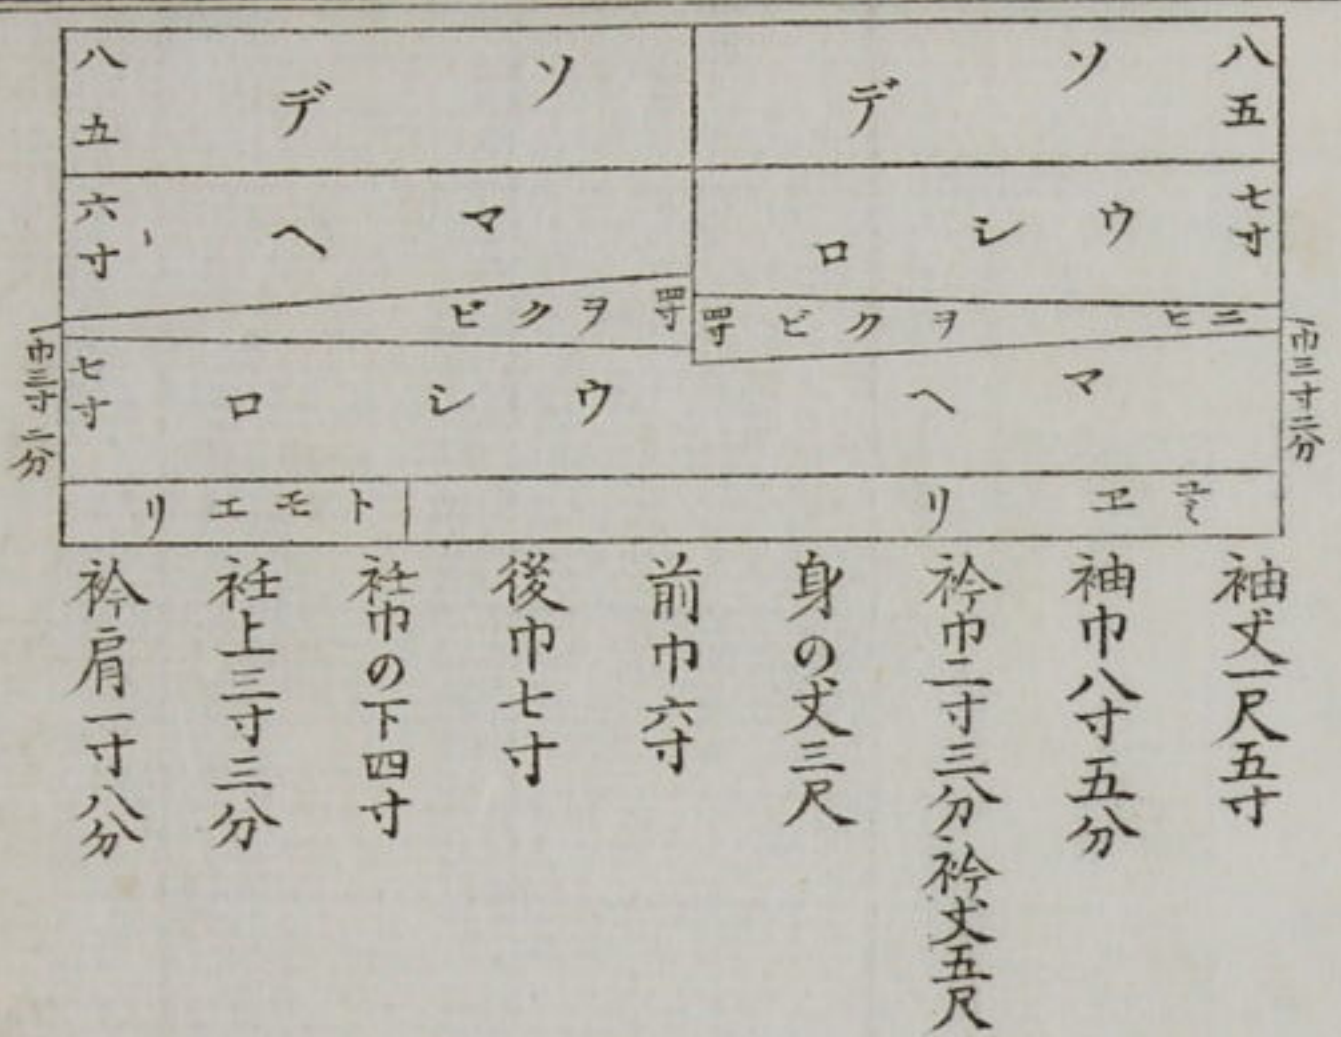 ソデ
八五
ソデ
八五
ウシロ
七寸
マヘ
六寸
ヲクビ
四寸
ヲクビ
四寸
巾三寸二分
マヘ
ウシロ
七寸
巾三寸二分
ヱリ
トモエリ
袖丈一尺五寸
袖巾八寸五分
衿巾二寸三分衿丈五尺
身の丈三尺
前巾六寸
後巾七寸
衽巾の下四寸
衽上三寸三分
衿肩一寸八分